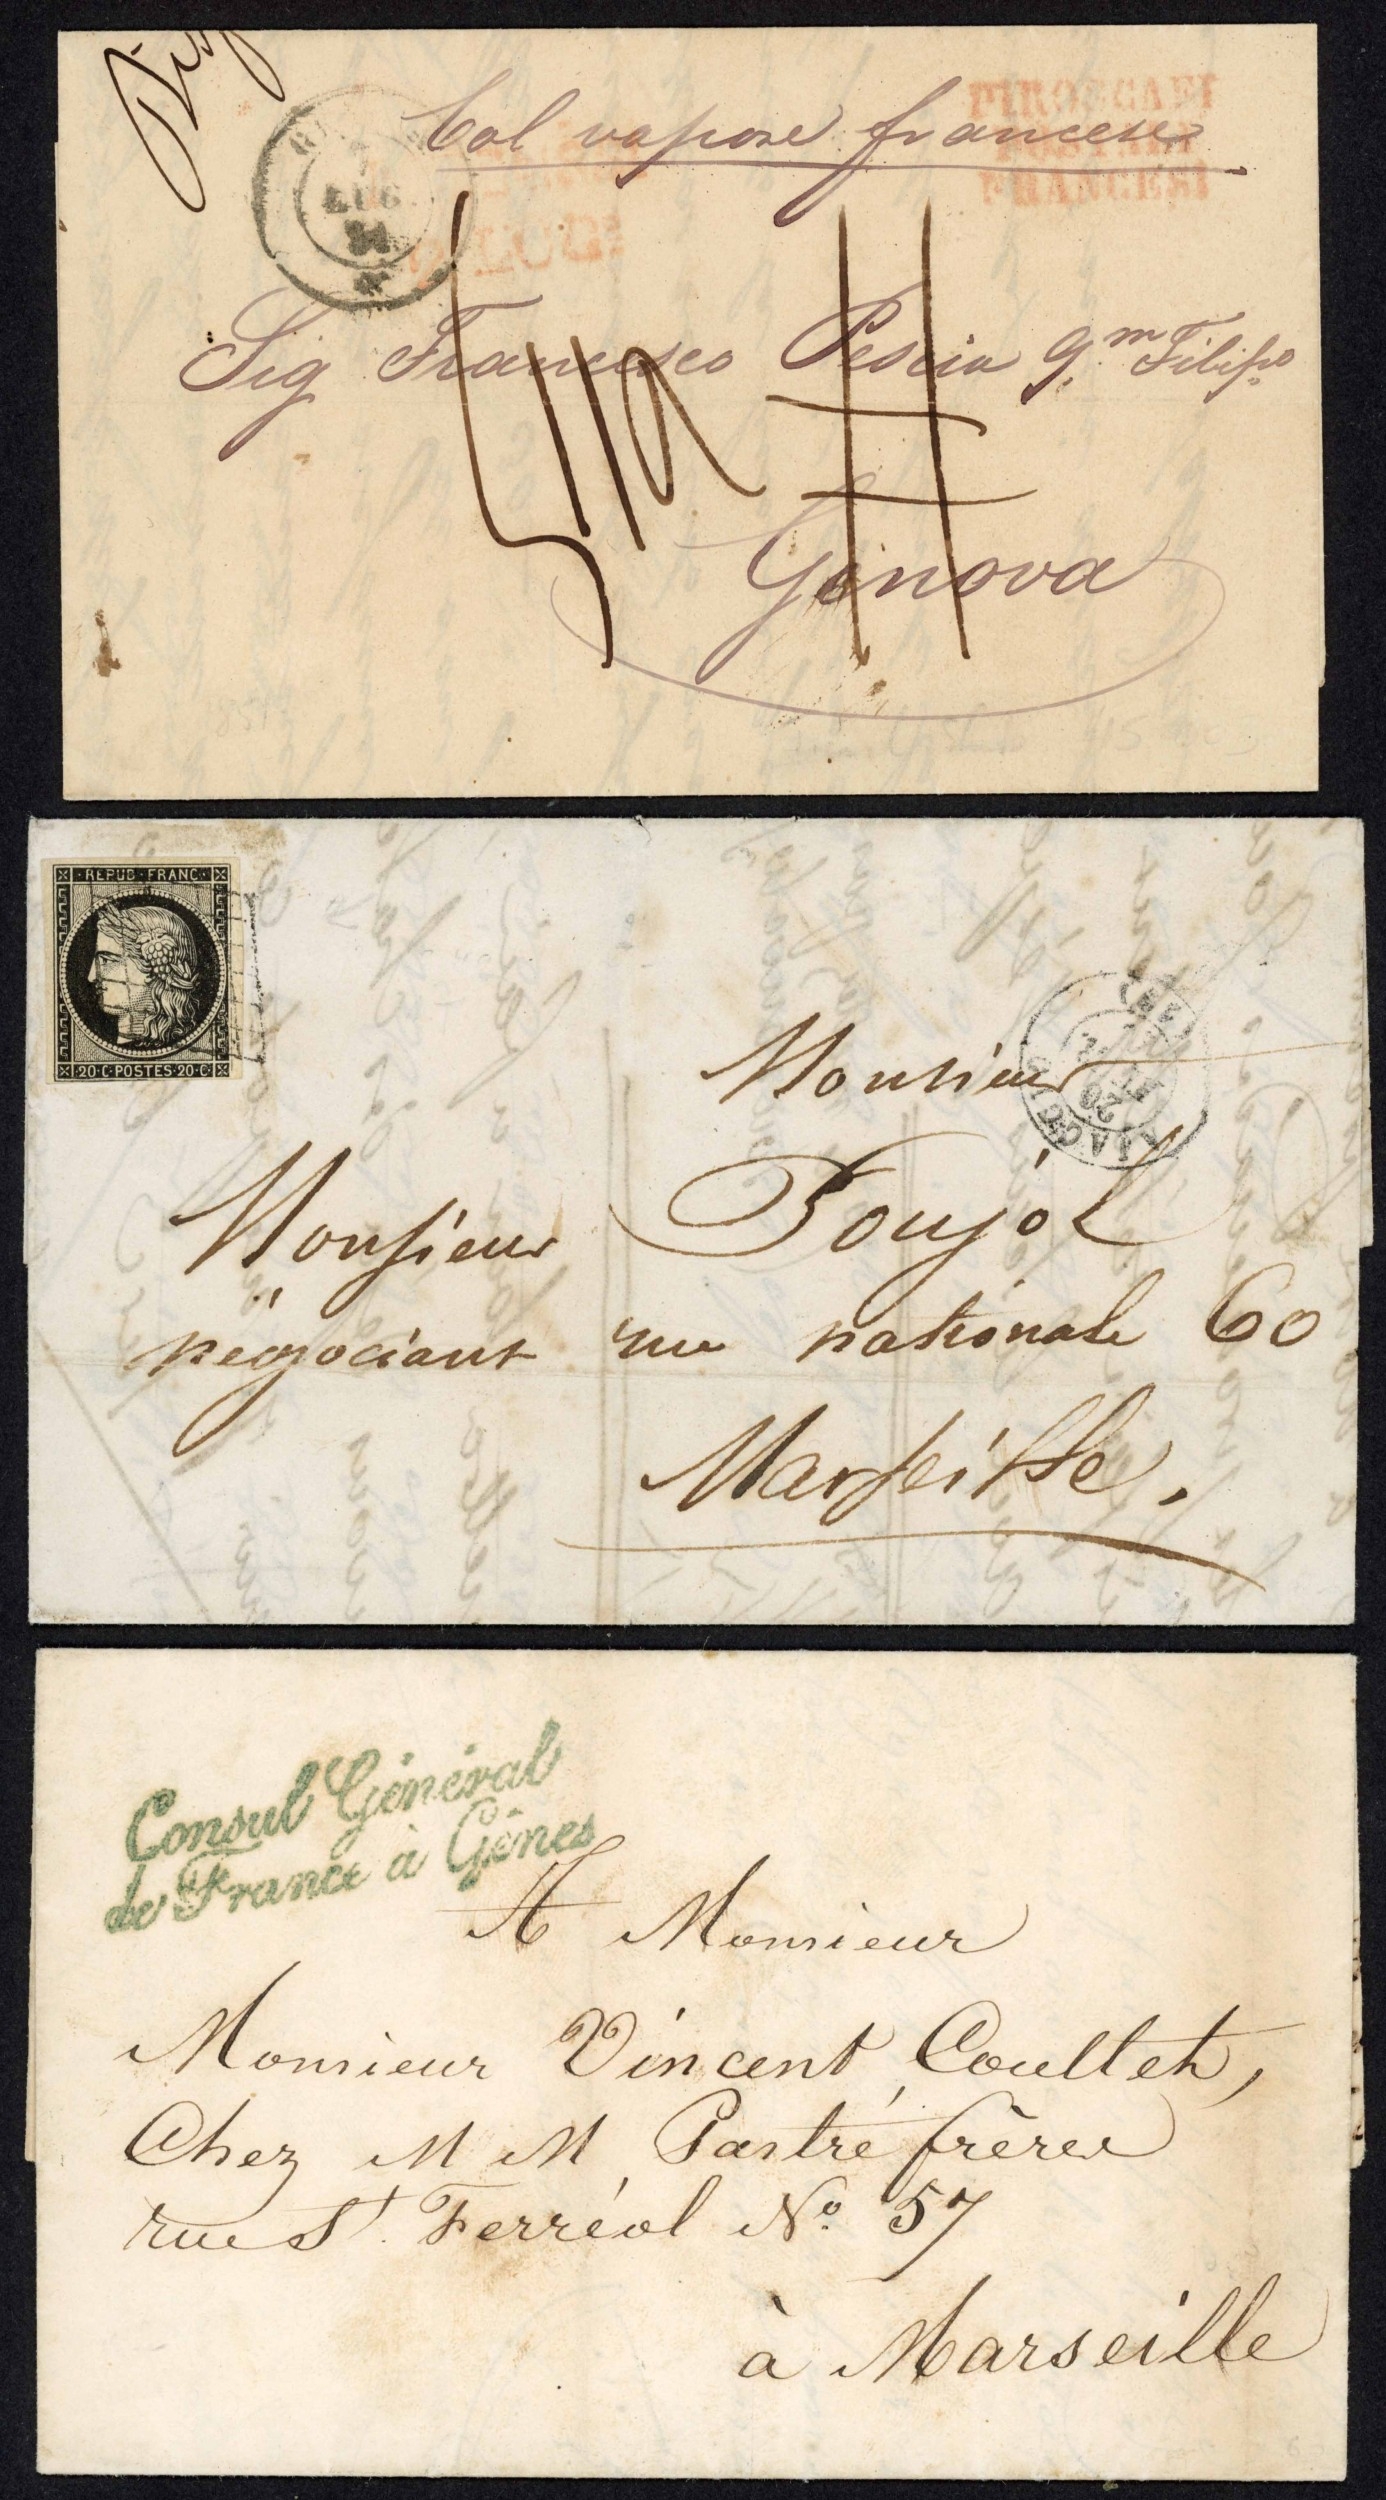 Col vapore francese
PIROSCAFI
POSTALI
FRANCESI
LUG
Sig Francesco Pescia q.m Filippo
Genova
REPUB FRANC
20 C POSTES 20 C
AJACCIO
20
Monsieur
Monsieur Poujol
négociant rue nationale 60
Marseille.
Consul Général
de France à Gênes
A Monsieur
Monsieur Vincent Coullet,
Chez M M Pastré frères
rue St. Ferréol No. 57
à Marseille